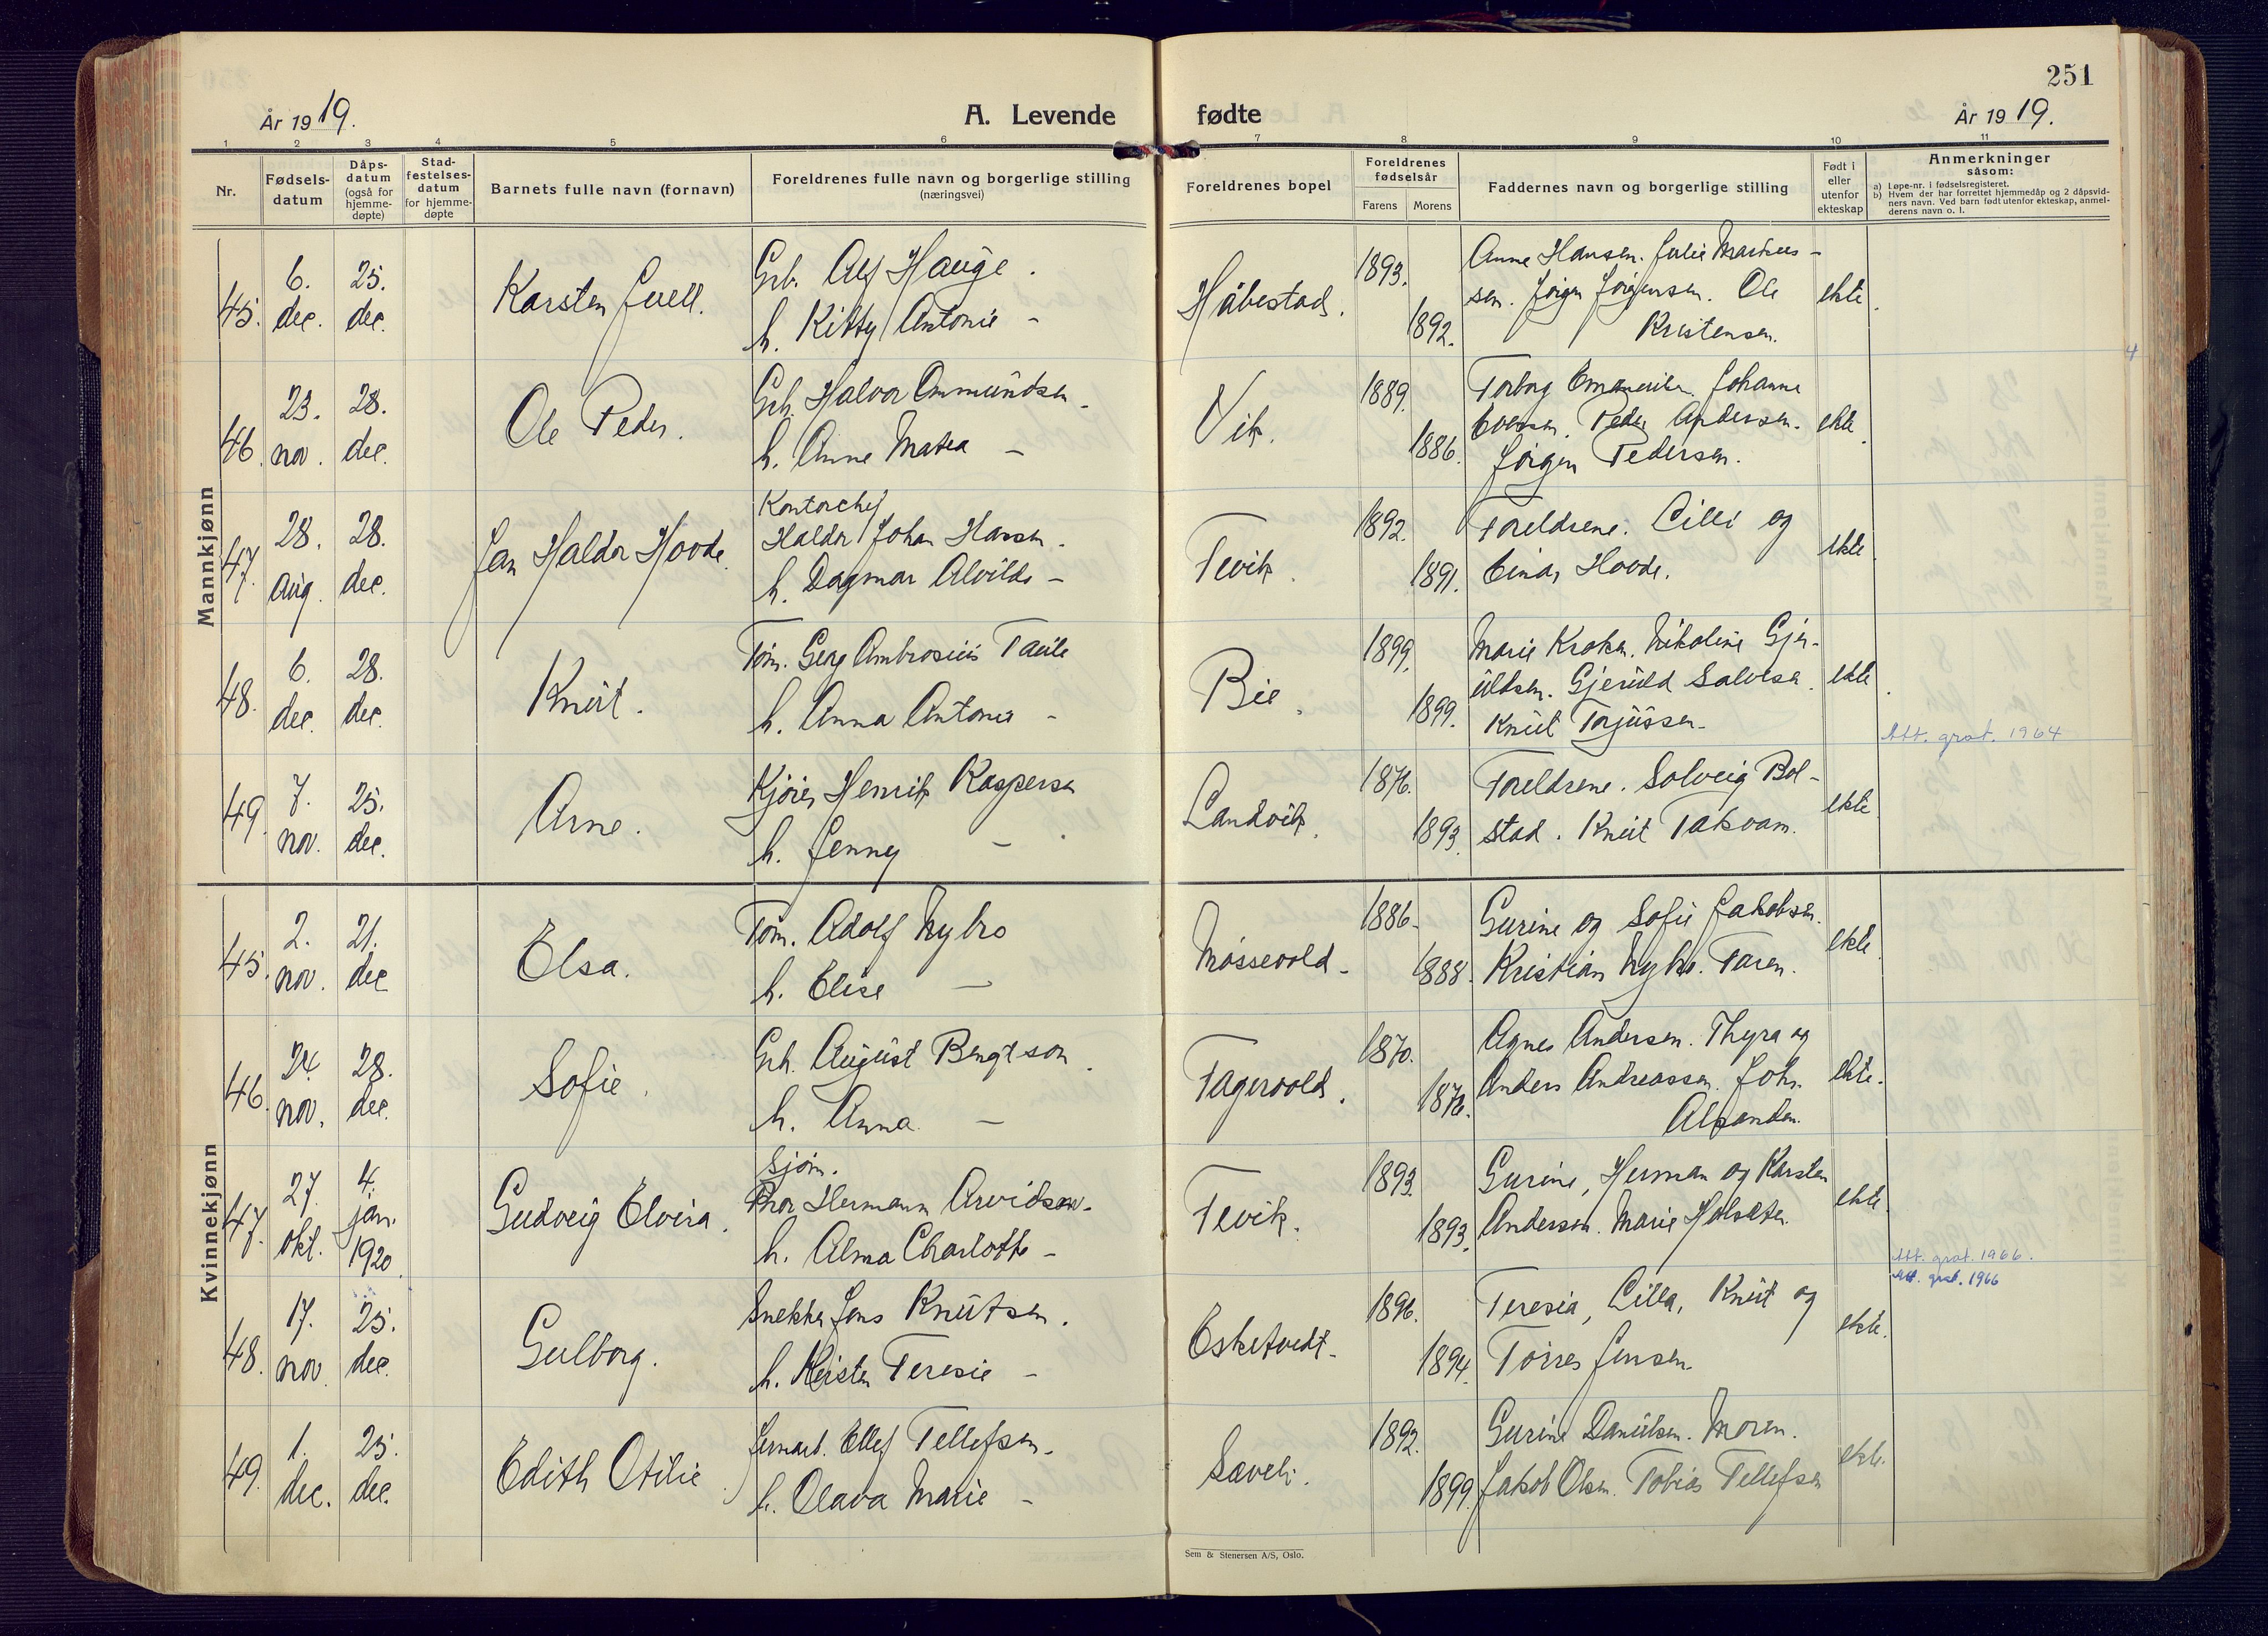 251
År 1919.
A. Levende fødte
År 1919.
1 2 3 4 5 6 7 8 9 10 11
Nr.
Fødsels-
datum
Dåps-
datum
(også for
hjemme-
døpte)
Stad-
festelses-
datum
for hjemme-
døpte
Barnets fulle navn (fornavn)
Foreldrenes fulle navn og borgerlige stilling
(næringsvei)
Foreldrenes bopel
Foreldrenes
fødselsår
Farens
Morens
Faddernes navn og borgerlige stilling
Født i
eller
utenfor
ekteskap
Anmerkninger
såsom:
a) Løpe-nr. i fødselsregisteret.
b) Hvem der har forrettet hjemmedåp og 2 dåpsvid-
ners navn. Ved barn født utenfor ekteskap, anmel-
derens navn o. l.
Mannkjønn
45.
6.
dec.
25.
dec.
Karsten Juell.
Grb. Alf Hauge.
h. Kitty Antonie -
Håbestad.
1893.
1892.
Anne Hansen. Julie Markus-
sen. Jørgen Jørgensen. Ole
Kristensen.
ekte.
46.
23.
nov.
28.
dec.
Ole Peder.
Grb. Halvor Ommundsen.
h. Anne Matea -
Vik.
1889.
1886.
Torborg Johanne
Evensen. Peder Andersen.
Jørgen Pedersen.
ekte.
47.
28.
aug.
28.
dec.
Jan Haldor Hovde.
Kontorchef
Haldor Johan Hansen.
h. Dagmar Alvilde -
Fevik.
1892.
1891.
Foreldrene. Cilli og
Einar Hovde.
ekte
48.
6.
dec.
28.
dec.
Knut.
Tøm. Georg Ambrosius Taule
h. Anna Antonie -
Bie.
1899.
1899.
Marie Kroken. Nikoline Gjer-
uldsen. Gjeruld Salvesen.
Knut Torjussen.
ekte.
Att. grat. 1964
49.
7.
nov.
25.
dec.
Arne.
Kjører Henrik Kaspersen
h. Jenny -
Landvik.
1876.
1893.
Foreldrene. Solveig Bol-
stad. Knut Takvam.
ekte
Kvinnekjønn
45.
2.
nov.
21.
dec
Elsa.
Tøm. Adolf Nybro
h. Elise -
Møssevold.
1886.
1888.
Gurine og Sofie Jakobsen.
Kristian Nybro. Faren.
ekte.
46.
24.
nov.
28.
dec.
Sofie.
Grb. August Bengtson.
h. Anna -
Fagervold.
1870.
1876.
Agnes Andersen. Thyra og
Anders Andreassen. Joh.
ekte.
47.
27.
okt.
4.
jan.
1920.
Gudveig Elvira.
Sjøm.
Thor Hermann Arvidson.
h. Alma Charlotte -
Fevik.
1893.
1893.
Gurine, Herman og Karsten
Andersen. Marie Holsæter.
ekte.
Att. grat. 1966.
Att. grat. 1966
48.
17.
nov
25.
dec.
Gulborg.
Snekker Jens Knutsen.
h. Kristen Teresie -
Esketvedt.
1896.
1894.
Teresia, Cilla, Knut og
Torres Jensen.
ekte.
49.
1.
dec.
25.
dec.
Edith Otilie
Jernarb. Ellef Tellefsen.
h. Olava Marie -
Saveli.
1892.
1899.
Gurine Danielsen. Moren.
Jakob Olsen. Tobias Tellefsen
ekte.
Sem & Stenersen A/S, Oslo.